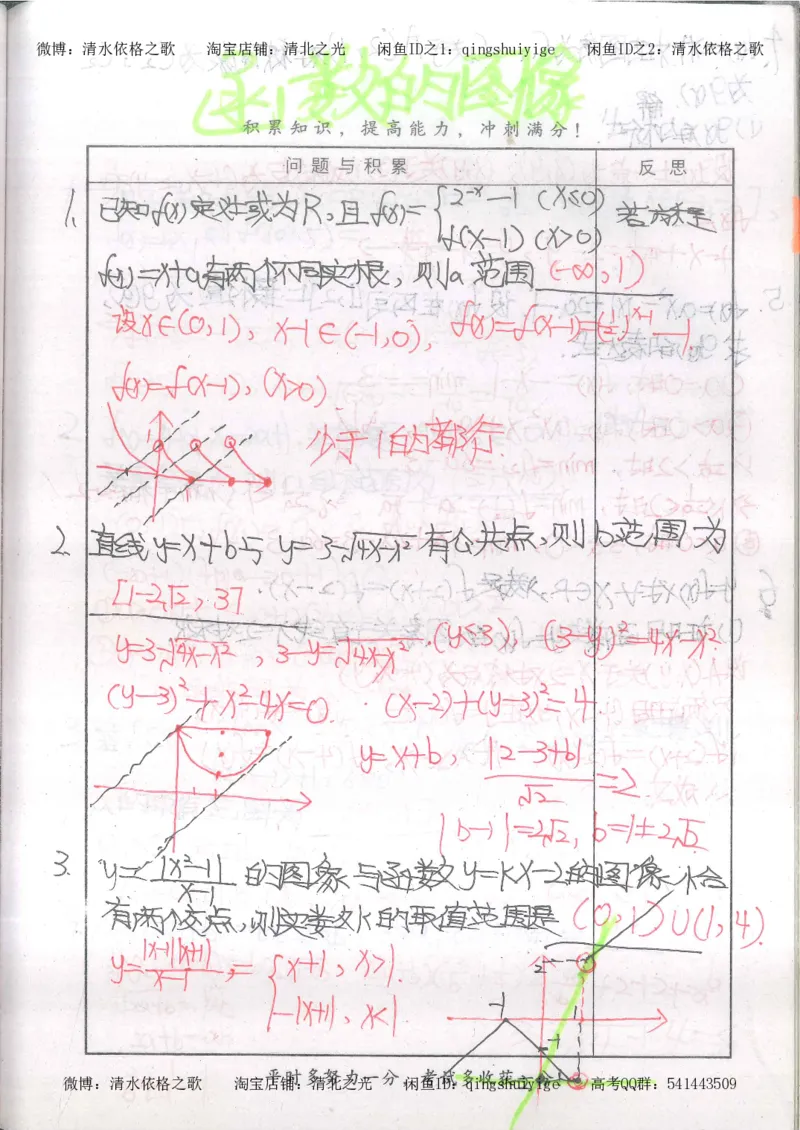 微博：清水依格之歌 淘宝店铺：清北之光 闲鱼ID之1：qingshuiyige 闲鱼ID之2：清水依格之歌
函数的图像
积累知识，提高能力，冲刺满分！
问题与积累 反思
1. 已知f(x)定义域为R，且f(x)={2^-x-1 (x≤0) 若方程
f(x-1) (x>0)
f(x)=x+a有两个不同实根，则a范围 (-∞,1)
设x∈(0,1)，x-1∈(-1,0)，f(x)=f(x-1)=(1/2)^x-1-1.
f(x)=f(x-1)，(x>0)
少于1的都行.
2. 直线y=x+b与y=3-√4x-x² 有公共点，则b范围为
[1-2√2，3].
y=3-√4x-x²，3-y=√4x-x² (y≤3)，(3-y)²=4x-x².
(y-3)²+x²-4x=0. (x-2)+(y-3)²=4
y=x+b，|2-3+b|/√2=2
|b-1|=2√2，b=1±2√2
3. y=|x²-1|/x-1 的图象与函数y=kx-2的图像恰
有两个交点，则实数k的取值范围是 (0,1)∪(1,4).
y=|x-1||x+1|/x-1，={x+1，x>1.
-|x+1|，x<1
2
-1 1
-1
平时多努力一分，考试多收获一分！
微博：清水依格之歌 淘宝店铺：清北之光 闲鱼ID：qingshuiyige 高考QQ群：541443509